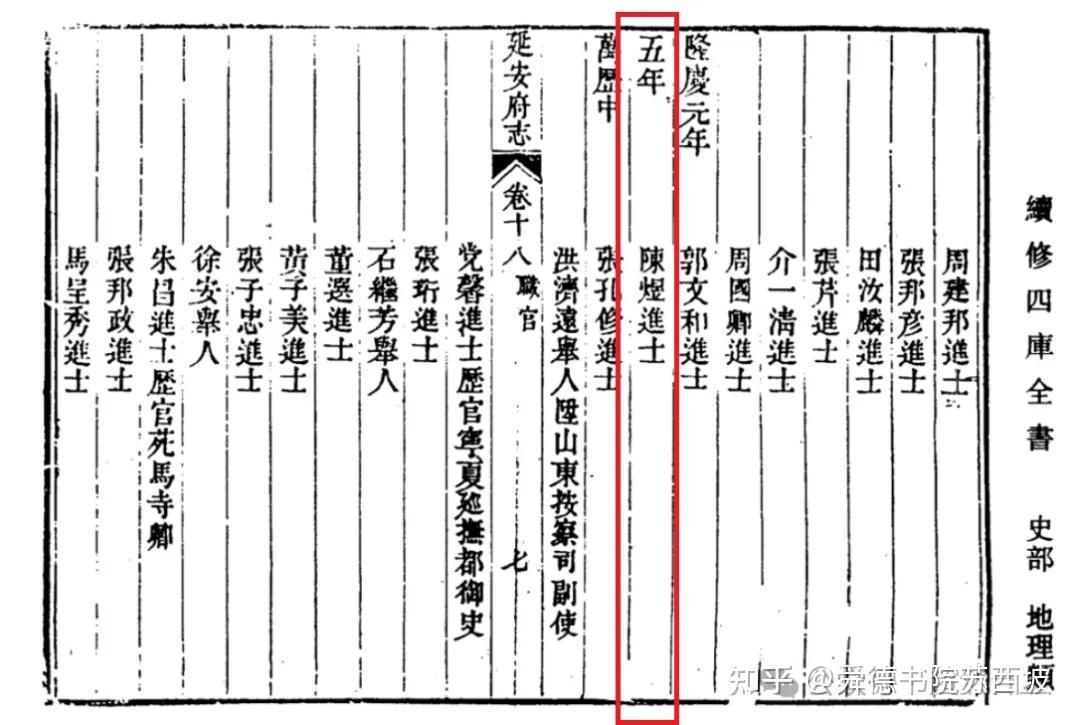 續修四庫全書 史部 地理類
周建邦進士
張邦彥進士
田汝麟進士
張芹進士
介一清進士
周國卿進士
隆慶元年 郭文和進士
五年 陳煜進士
萬歷中 張孔修進士
洪濟遠舉人陞山東按察司副使
延安府志 卷十八 職官 七
党馨進士歷官寧夏廵撫都御史
張珩進士
石繼芳舉人
董選進士
黃子美進士
張子忠進士
徐安舉人
朱昌進士歷官苑馬寺卿
張邦政進士
馬呈秀進士
知乎 @舜德书院苏西坡